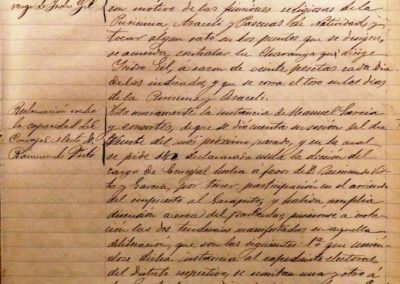 ranga de Isidro Gil
con motivo de las funciones religiosas de la
Purísima, Araceli y Pascuas de Natividad, y
tocar algun rato en los puntos que se designe,
se acuerda contratar la Charanga que dirige
Isidro Gil á razon de veinte pesetas cada dia
de los indicados, y que se corra el toro en los dias
de la Purísima y Araceli.
Reclamación contra
la capacidad del
Concejal electo D.
Raimundo
Vista nuevamente la instancia de Manuel García
y consortes, que se dió cuenta en sesion del dia
veinte del mes próximo pasado, y en la cual
se pide sea declarada nula la eleccion del
cargo de Concejal hecha a favor de D. Raimundo
y García, por tener participacion en el arriendo
del impuesto de Consumos, y habida amplia
discusión acerca del particular, pusieronse á vota-
ción las dos tendencias manifestadas en aquella
deliberación, que son las siguientes: 1ª que unien-
dose dicha instancia al expediente electoral
del Distrito respectivo, se remitan una y otro á